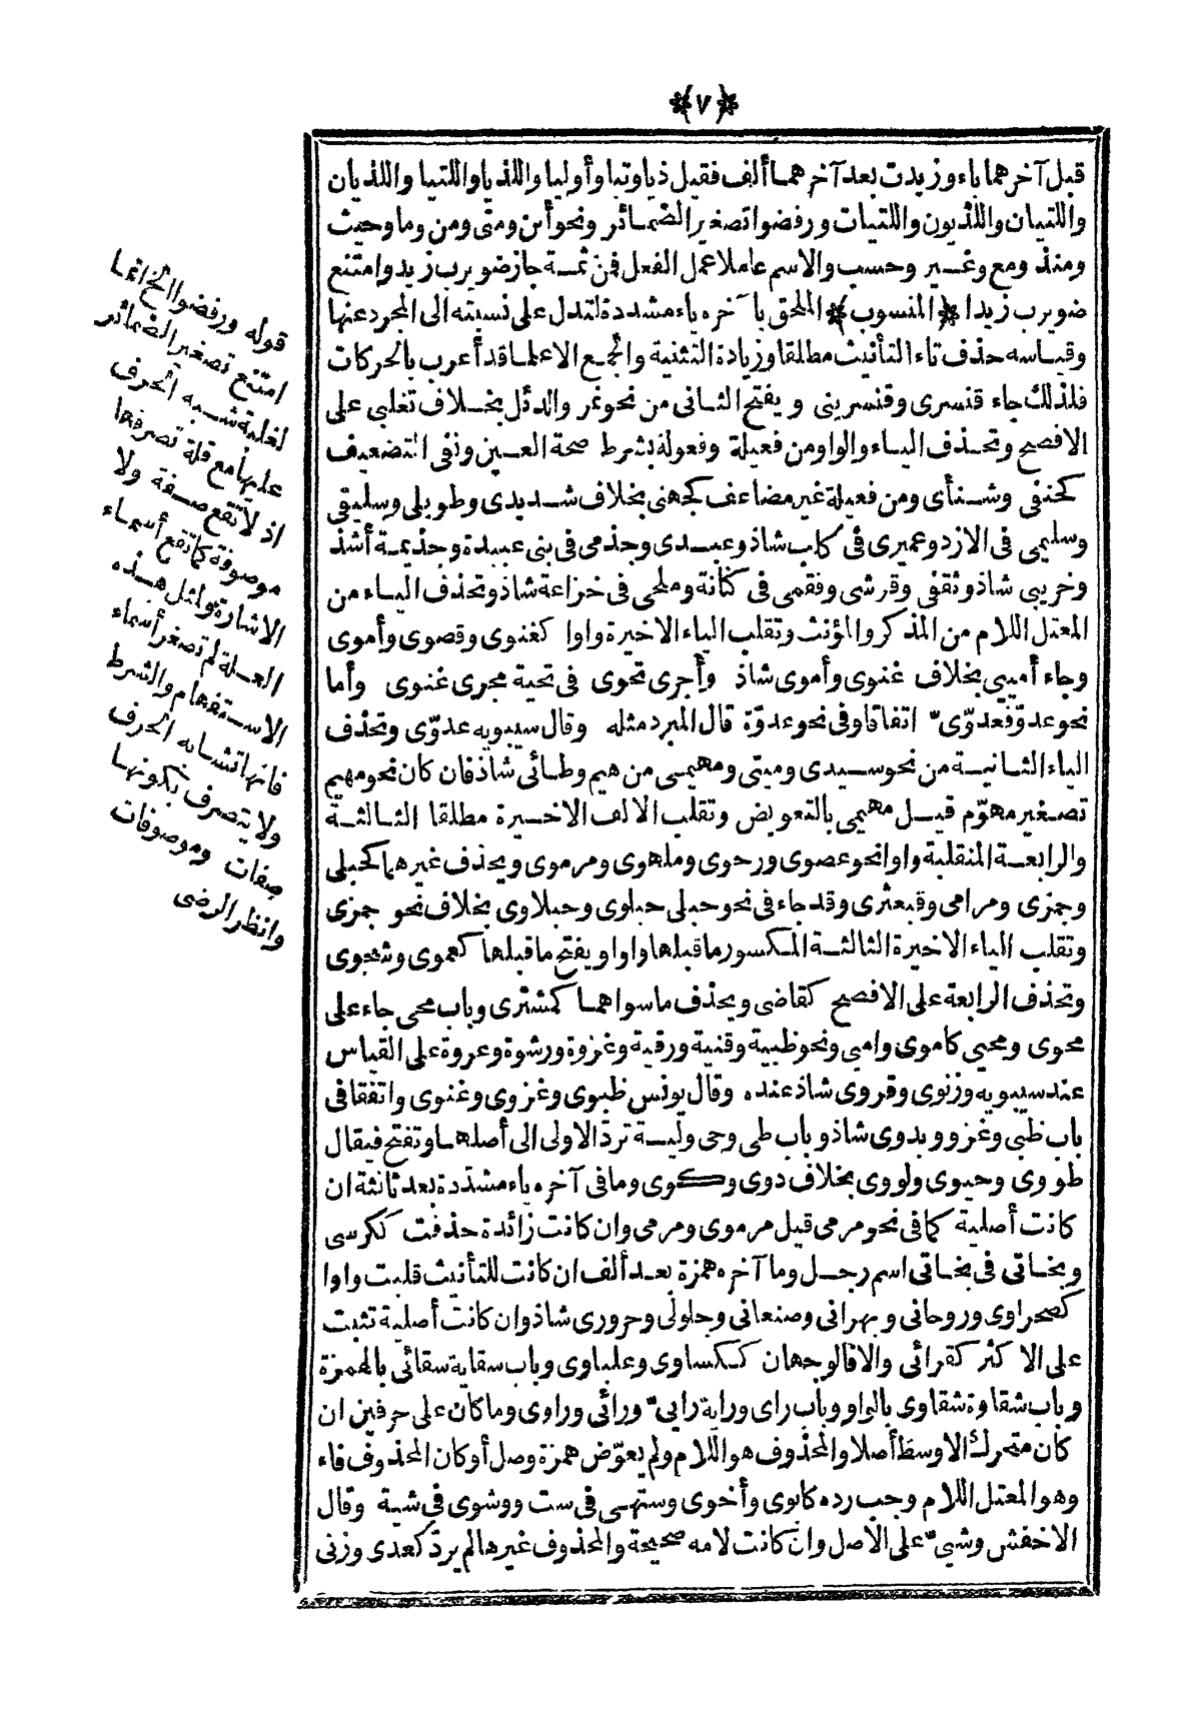 ﴿٧﴾
قبل آخرهما ياء وزيدت بعد آخرهما ألف فقيل ذيا وتيا وأوليا واللذيا واللتيا واللذيان
واللتيان واللذيون واللتيات ورفضوا تصغير الضمائر ونحو أين ومتى ومن وما وحيث
ومنذ ومع وغير وحسب والاسم عاملا عمل الفعل فمن ثمة جاز ضويرب زيد وامتنع
ضويرب زيدا * المنسوب * الملحق بآخره ياء مشددة لتدل على نسبته الى المجرد عنها
وقياسه حذف تاء التأنيث مطلقا وزيادة التثنية والجمع الا علما قد أعرب بالحركات
فلذلك جاء قنسرى وقنسرينى ويفتح الثانى من نحو نمر والدئل بخلاف تغلبى على
الافصح وتحذف الياء والواو من فعيلة وفعولة بشرط صحة العين ونفى التضعيف
كحنفى وشنأى ومن فعيلة غير مضاعف كجهنى بخلاف شديدى وطويلى وسليقى
وسليمى فى الازد وعميرى فى كلب شاذ وعبدى وجذمى فى بنى عبيدة وجذيمة أشذ
وخريبى شاذ وثقفى وقرشى وفقمى فى كنانة وملحى فى خزاعة شاذ وتحذف الياء من
المعتل اللام من المذكر والمؤنث وتقلب الياء الاخيرة واوا كغنوى وقصوى وأموى
وجاء أميى بخلاف غنوى وأموى شاذ وأجرى تحوى فى تحية مجرى غنوى وأما
نحو عدوّ فعدوّىّ اتفاقا وفى نحو عدوّة قال المبرد مثله وقال سيبويه عدوّى وتحذف
الياء الثانية من نحو سيدى وميتى ومهيمى من هيم وطائى شاذ فان كان نحو مهيم
تصغير مهوّم قيل مهيمى بالتعويض وتقلب الالف الاخيرة مطلقا الثالثة
والرابعة المنقلبة واوا نحو عصوى ورحوى وملهوى ومرموى ويحذف غيرهما كحبلى
وجمزى ومرامى وقبعثرى وقد جاء فى نحو حبلى حبلوى وحبلاوى بخلاف نحو جمزى
وتقلب الياء الاخيرة الثالثة المكسور ما قبلها واوا ويفتح ما قبلها كعموى وشجوى
وتحذف الرابعة على الافصح كقاضى ويحذف ما سواهما كمشترى وباب محى جاء على
محوى ومحيى كاموى واميى ونحو ظبية وقنية ورقية وغزوة ورشوة وعروة على القياس
عند سيبويه وزنوى وقروى شاذ عنده وقال يونس ظبوى وغزوى وغنوى واتفقا فى
باب ظبى وغزو وبدوى شاذ وباب طى وحى ولية تردّ الاولى الى أصلها وتفتح فيقال
طووى وحيوى ولووى بخلاف دوى وكوى وما فى آخره ياء مشددة بعد ثالثة ان
كانت أصلية كما فى نحو مرمى قيل مرموى ومرمى وان كانت زائدة حذفت ككرسى
وبخاتى فى بخاتى اسم رجل وما آخره همزة بعد ألف ان كانت للتأنيث قلبت واوا
كصحراوى وروحانى وبهرانى وصنعانى وجلولى وحرورى شاذ وان كانت أصلية تثبت
على الاكثر كقرائى والا فالوجهان ككساوى وعلباوى وباب سقاية سقائى بالهمزة
وباب شقاوة شقاوى بالواو وباب راى وراية رايىّ ورائى وراوى وما كان على حرفين ان
كان متحرك الاوسط أصلا والمحذوف هو اللام ولم يعوّض همزة وصل أو كان المحذوف فاء
وهو المعتل اللام وجب رده كابوى وأخوى وستهى فى ست ووشوى فى شية وقال
الاخفش وشيىّ على الاصل وان كانت لامه صحيحة والمحذوف غيرها لم يردّ كعدى وزنى
قوله ورفضوا الخ انما
امتنع تصغير الضمائر
لغلبة شبه الحرف
عليها مع قلة تصرفها
اذ لا تقع صفة ولا
موصوفة كما تقع أسماء
الاشارة ولمثل هذه
العلة لم تصغر أسماء
الاستفهام والشرط
فانها تشابه الحرف
ولا يتصرف بكونها
صفات وموصوفات
وانظر الرضى